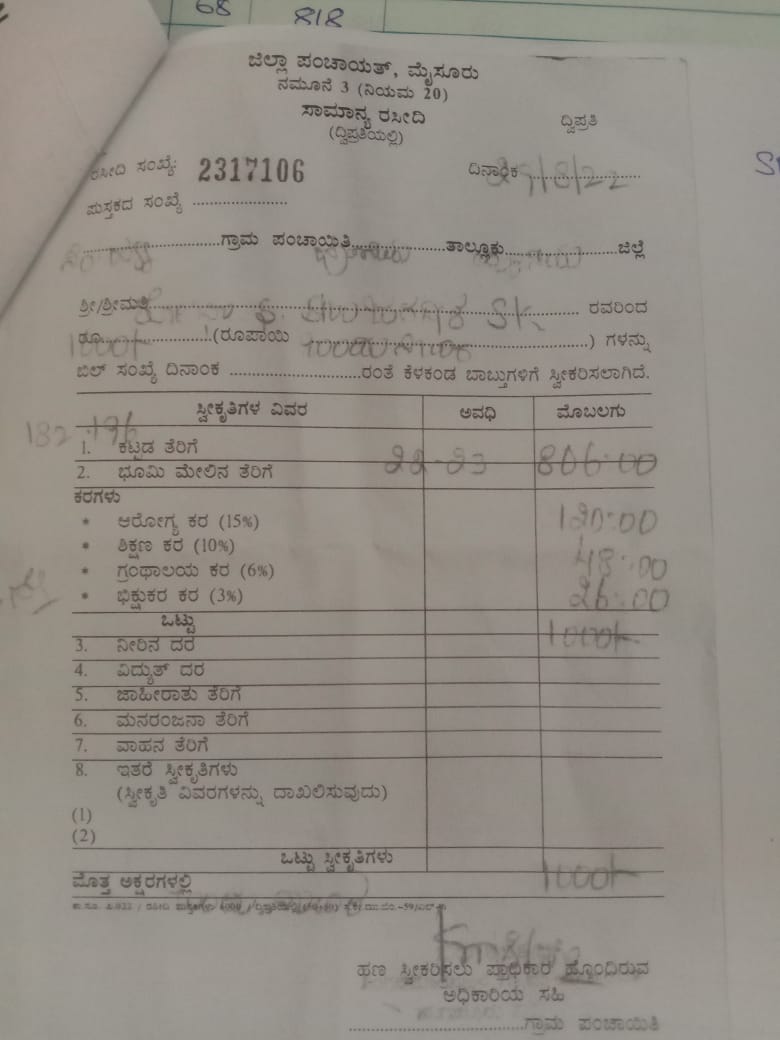 68 818
ಜಿಲ್ಲಾ ಪಂಚಾಯತ್, ಮೈಸೂರು
ನಮೂನೆ 3 (ನಿಯಮ 20)
ಸಾಮಾನ್ಯ ರಸೀದಿ ದ್ವಿಪ್ರತಿ
(ದ್ವಿಪ್ರತಿಯಲ್ಲಿ)
ರಸೀದಿ ಸಂಖ್ಯೆ: 2317106 ದಿನಾಂಕ /8/22
ಪುಸ್ತಕದ ಸಂಖ್ಯೆ ....................
ಗ್ರಾಮ ಪಂಚಾಯಿತಿ ತಾಲ್ಲೂಕು ಜಿಲ್ಲೆ
ಶ್ರೀ/ಶ್ರೀಮತಿ S. SK ರವರಿಂದ
ರೂ. 1000/- (ರೂಪಾಯಿ ) ಗಳನ್ನು
ಬಿಲ್ ಸಂಖ್ಯೆ ದಿನಾಂಕ ............................ರಂತೆ ಕೆಳಕಂಡ ಬಾಬ್ತುಗಳಿಗೆ ಸ್ವೀಕರಿಸಲಾಗಿದೆ.
ಸ್ವೀಕೃತಿಗಳ ವಿವರ ಅವಧಿ ಮೊಬಲಗು
1. ಕಟ್ಟಡ ತೆರಿಗೆ 22-23 806:00
2. ಭೂಮಿ ಮೇಲಿನ ತೆರಿಗೆ
ಕರಗಳು
* ಆರೋಗ್ಯ ಕರ (15%) 120:00
* ಶಿಕ್ಷಣ ಕರ (10%)
* ಗ್ರಂಥಾಲಯ ಕರ (6%) 48:00
* ಭಿಕ್ಷುಕರ ಕರ (3%) 26:00
ಒಟ್ಟು 1000/-
3. ನೀರಿನ ದರ
4. ವಿದ್ಯುತ್ ದರ
5. ಜಾಹೀರಾತು ತೆರಿಗೆ
6. ಮನರಂಜನಾ ತೆರಿಗೆ
7. ವಾಹನ ತೆರಿಗೆ
8. ಇತರೆ ಸ್ವೀಕೃತಿಗಳು
(ಸ್ವೀಕೃತಿ ವಿವರಗಳನ್ನು ದಾಖಲಿಸುವುದು)
(1)
(2)
ಒಟ್ಟು ಸ್ವೀಕೃತಿಗಳು 1000/-
ಮೊತ್ತ ಅಕ್ಷರಗಳಲ್ಲಿ
ಹಣ ಸ್ವೀಕರಿಸಲು ಪ್ರಾಧಿಕಾರ ಹೊಂದಿರುವ
ಅಧಿಕಾರಿಯ ಸಹಿ
............................ಗ್ರಾಮ ಪಂಚಾಯಿತಿ